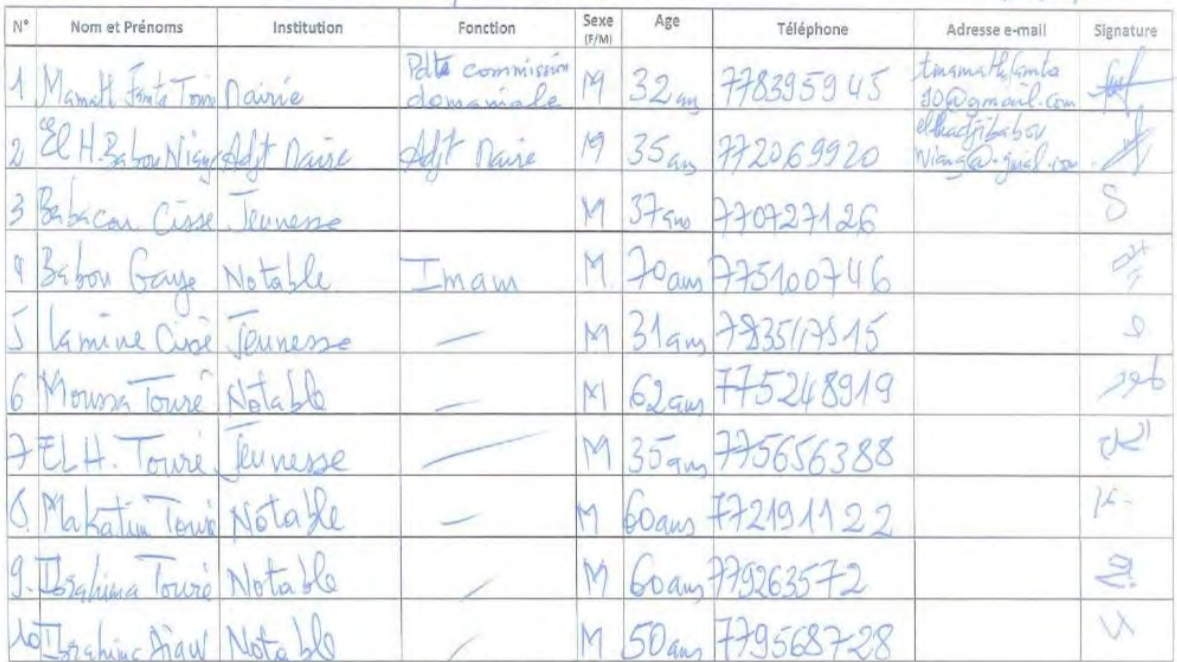 N° Nom et Prénoms Institution Fonction Sexe (F/M) Age Téléphone Adresse e-mail Signature
1 Mamath Fanta Touré Mairie Pdte commission domaniale M 32 ans 778395945 @gmail.com
2 El H. Babou Niang Adjt Maire Adjt Maire M 35 ans 772069920 elhadjibabou
3 Babacar Cissé Jeunesse M 37 ans 770727126
4 Babou Gaye Notable Imam M 70 ans 775100746
5 Lamine Cissé Jeunesse — M 31 ans
6 Moussa Touré Notable — M 62 ans 775248919
7 EL H. Touré Jeunesse — M 35 ans 775656388
8. Touré Notable — M 60 ans 772191122
9. Ibrahima Touré Notable — M 60 ans 779263572
10 Ibrahima Notable — M 50 ans 779568728